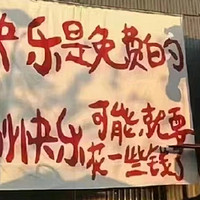 快乐是免费的
快乐可能就要
花一些钱了